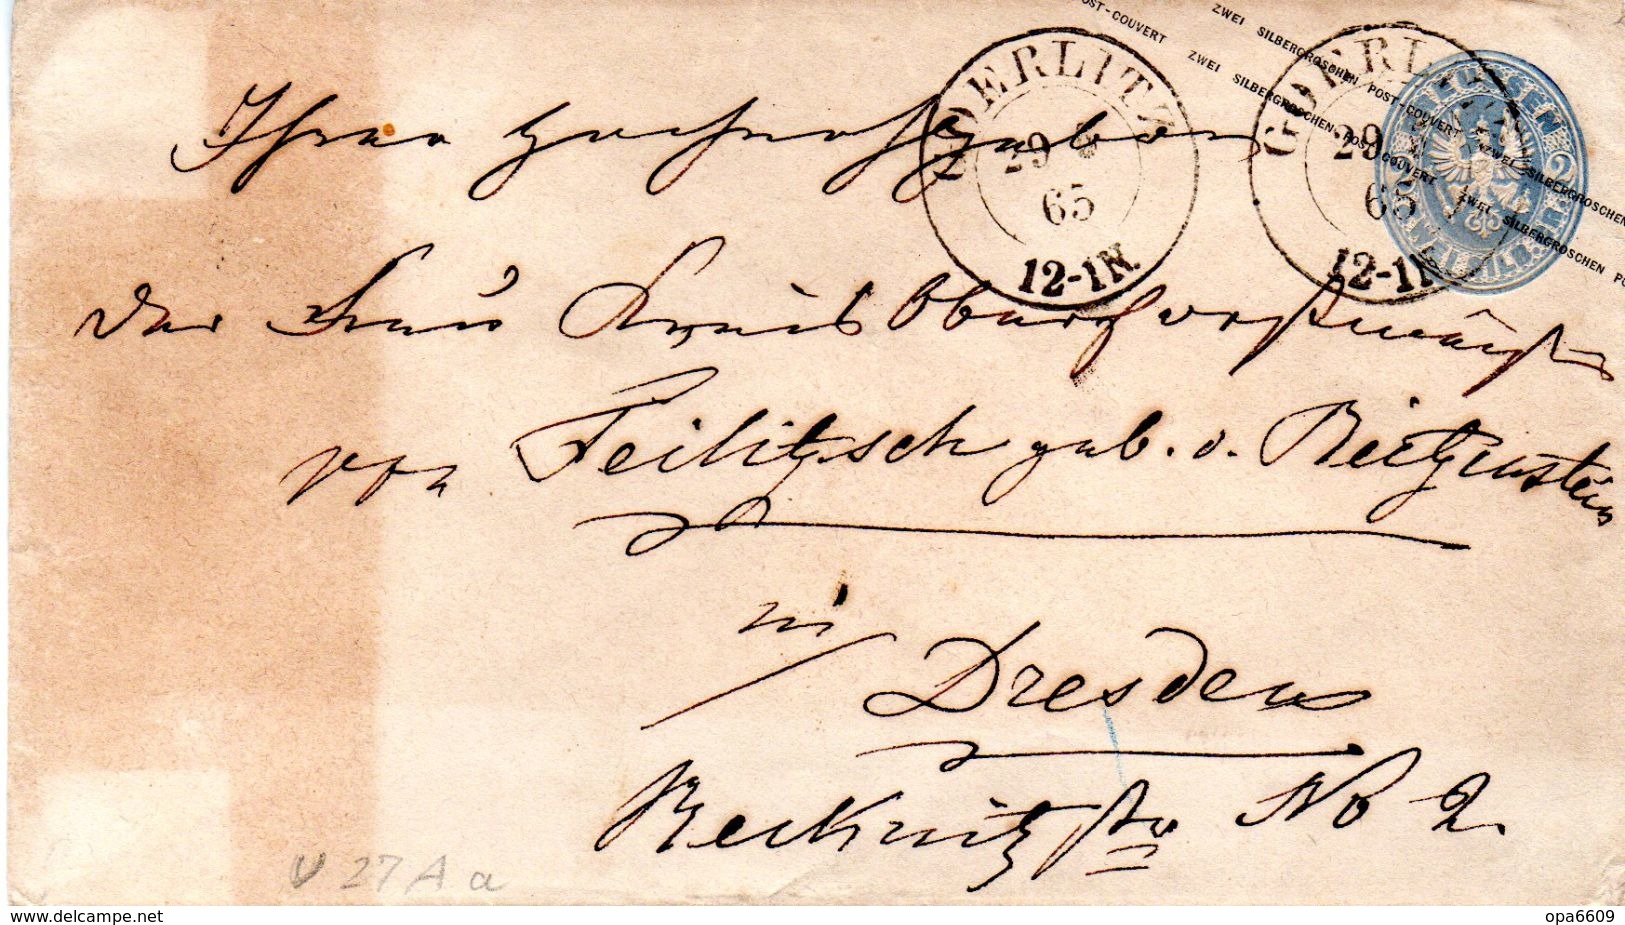 POST-COUVERT ZWEI SILBERGROSCHEN POST-COUVERT ZWEI SILBERGROSCHEN PO
ZWEI SILBERGROSCHEN POST-COUVERT ZWEI SILBERGROSCHEN
GOERLITZ
29
65
12-1N.
GOERLITZ
29
65
12-1N
PREUSSEN
2
ZWEI SILB. GR.
Ihrer Hochwohlgeboren
der Frau Kreis Oberforstmeister
von Feilitzsch geb. v. Reitzenstein
in
Dresden
Recknitzstr No 2.
V 27 A a
delcampe.net
opa6609